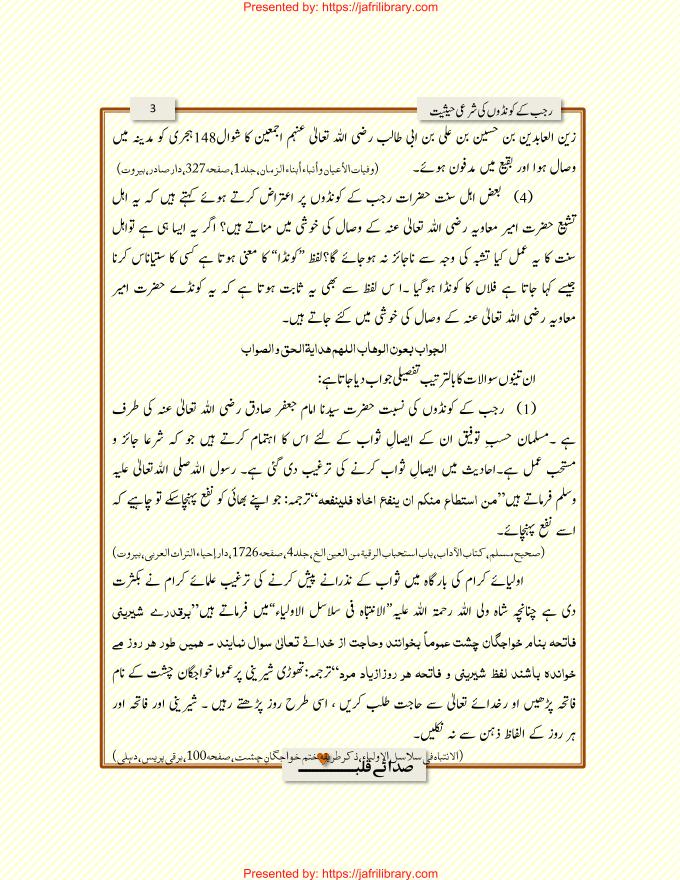 Presented by: https://jafrilibrary.com
رجب کے کونڈوں کی شرعی حیثیت
3
زین العابدین بن حسین بن علی بن ابی طالب رضی اللہ تعالیٰ عنہم اجمعین کا شوال148ہجری کو مدینہ میں
وصال ہوا اور بقیع میں مدفون ہوئے۔ (وفیات الأعیان وأنباء أبناء الزمان،جلد1،صفحہ327،دار صادر،بیروت)
(4) بعض اہل سنت حضرات رجب کے کونڈوں پر اعتراض کرتے ہوئے کہتے ہیں کہ یہ اہل
تشیع حضرت امیر معاویہ رضی اللہ تعالیٰ عنہ کے وصال کی خوشی میں مناتے ہیں؟ اگر یہ ایسا ہی ہے تواہل
سنت کا یہ عمل کیا تشبہ کی وجہ سے ناجائز نہ ہوجائے گا؟لفظ ”کونڈا“ کا معنی ہوتا ہے کسی کا ستیاناس کرنا
جیسے کہا جاتا ہے فلاں کا کونڈا ہوگیا ۔ا س لفظ سے بھی یہ ثابت ہوتا ہے کہ یہ کونڈے حضرت امیر
معاویہ رضی اللہ تعالیٰ عنہ کے وصال کی خوشی میں کئے جاتے ہیں۔
الجواب بعون الوهاب اللهم هداية الحق والصواب
ان تینوں سوالات کا بالترتیب تفصیلی جواب دیا جاتا ہے:
(1) رجب کے کونڈوں کی نسبت حضرت سیدنا امام جعفر صادق رضی اللہ تعالیٰ عنہ کی طرف
ہے ۔مسلمان حسبِ توفیق ان کے ایصالِ ثواب کے لئے اس کا اہتمام کرتے ہیں جو کہ شرعا جائز و
مستحب عمل ہے۔احادیث میں ایصالِ ثواب کرنے کی ترغیب دی گئی ہے۔ رسول اللہ صلی اللہ تعالیٰ علیہ
وسلم فرماتے ہیں”من استطاع منكم ان ينفع اخاه فلينفعه“ترجمہ: جو اپنے بھائی کو نفع پہنچاسکے تو چاہیے کہ
اسے نفع پہنچائے۔
(صحیح مسلم،کتاب الآداب،باب استحباب الرقیۃ من العین الخ،جلد4،صفحہ1726،دار إحیاء التراث العربی،بیروت)
اولیائے کرام کی بارگاہ میں ثواب کے نذرانے پیش کرنے کی ترغیب علمائے کرام نے بکثرت
دی ہے چنانچہ شاہ ولی اللہ رحمۃ اللہ علیہ”الانتباہ فی سلاسل الاولیاء“میں فرماتے ہیں”برقدرے شیرینی
فاتحہ بنام خواجگان چشت عموماً بخوانند وحاجت از خدائے تعالیٰ سوال نمایند ۔ ھمیں طور ھر روز مے
خواندہ باشند لفظ شیرینی و فاتحہ ھر روزازیاد مرد“ترجمہ:تھوڑی شیرینی پر عموما خواجگان چشت کے نام
فاتحہ پڑھیں او رخدائے تعالیٰ سے حاجت طلب کریں ، اسی طرح روز پڑھتے رہیں ۔ شیرینی اور فاتحہ اور
ہر روز کے الفاظ ذہن سے نہ نکلیں۔
(الانتباہ فی سلاسل الاولیاء،ذکر طریقہ ختم خواجگانِ چشت،صفحہ100،برقی پریس،دہلی)
صدائے قلب
Presented by: https://jafrilibrary.com